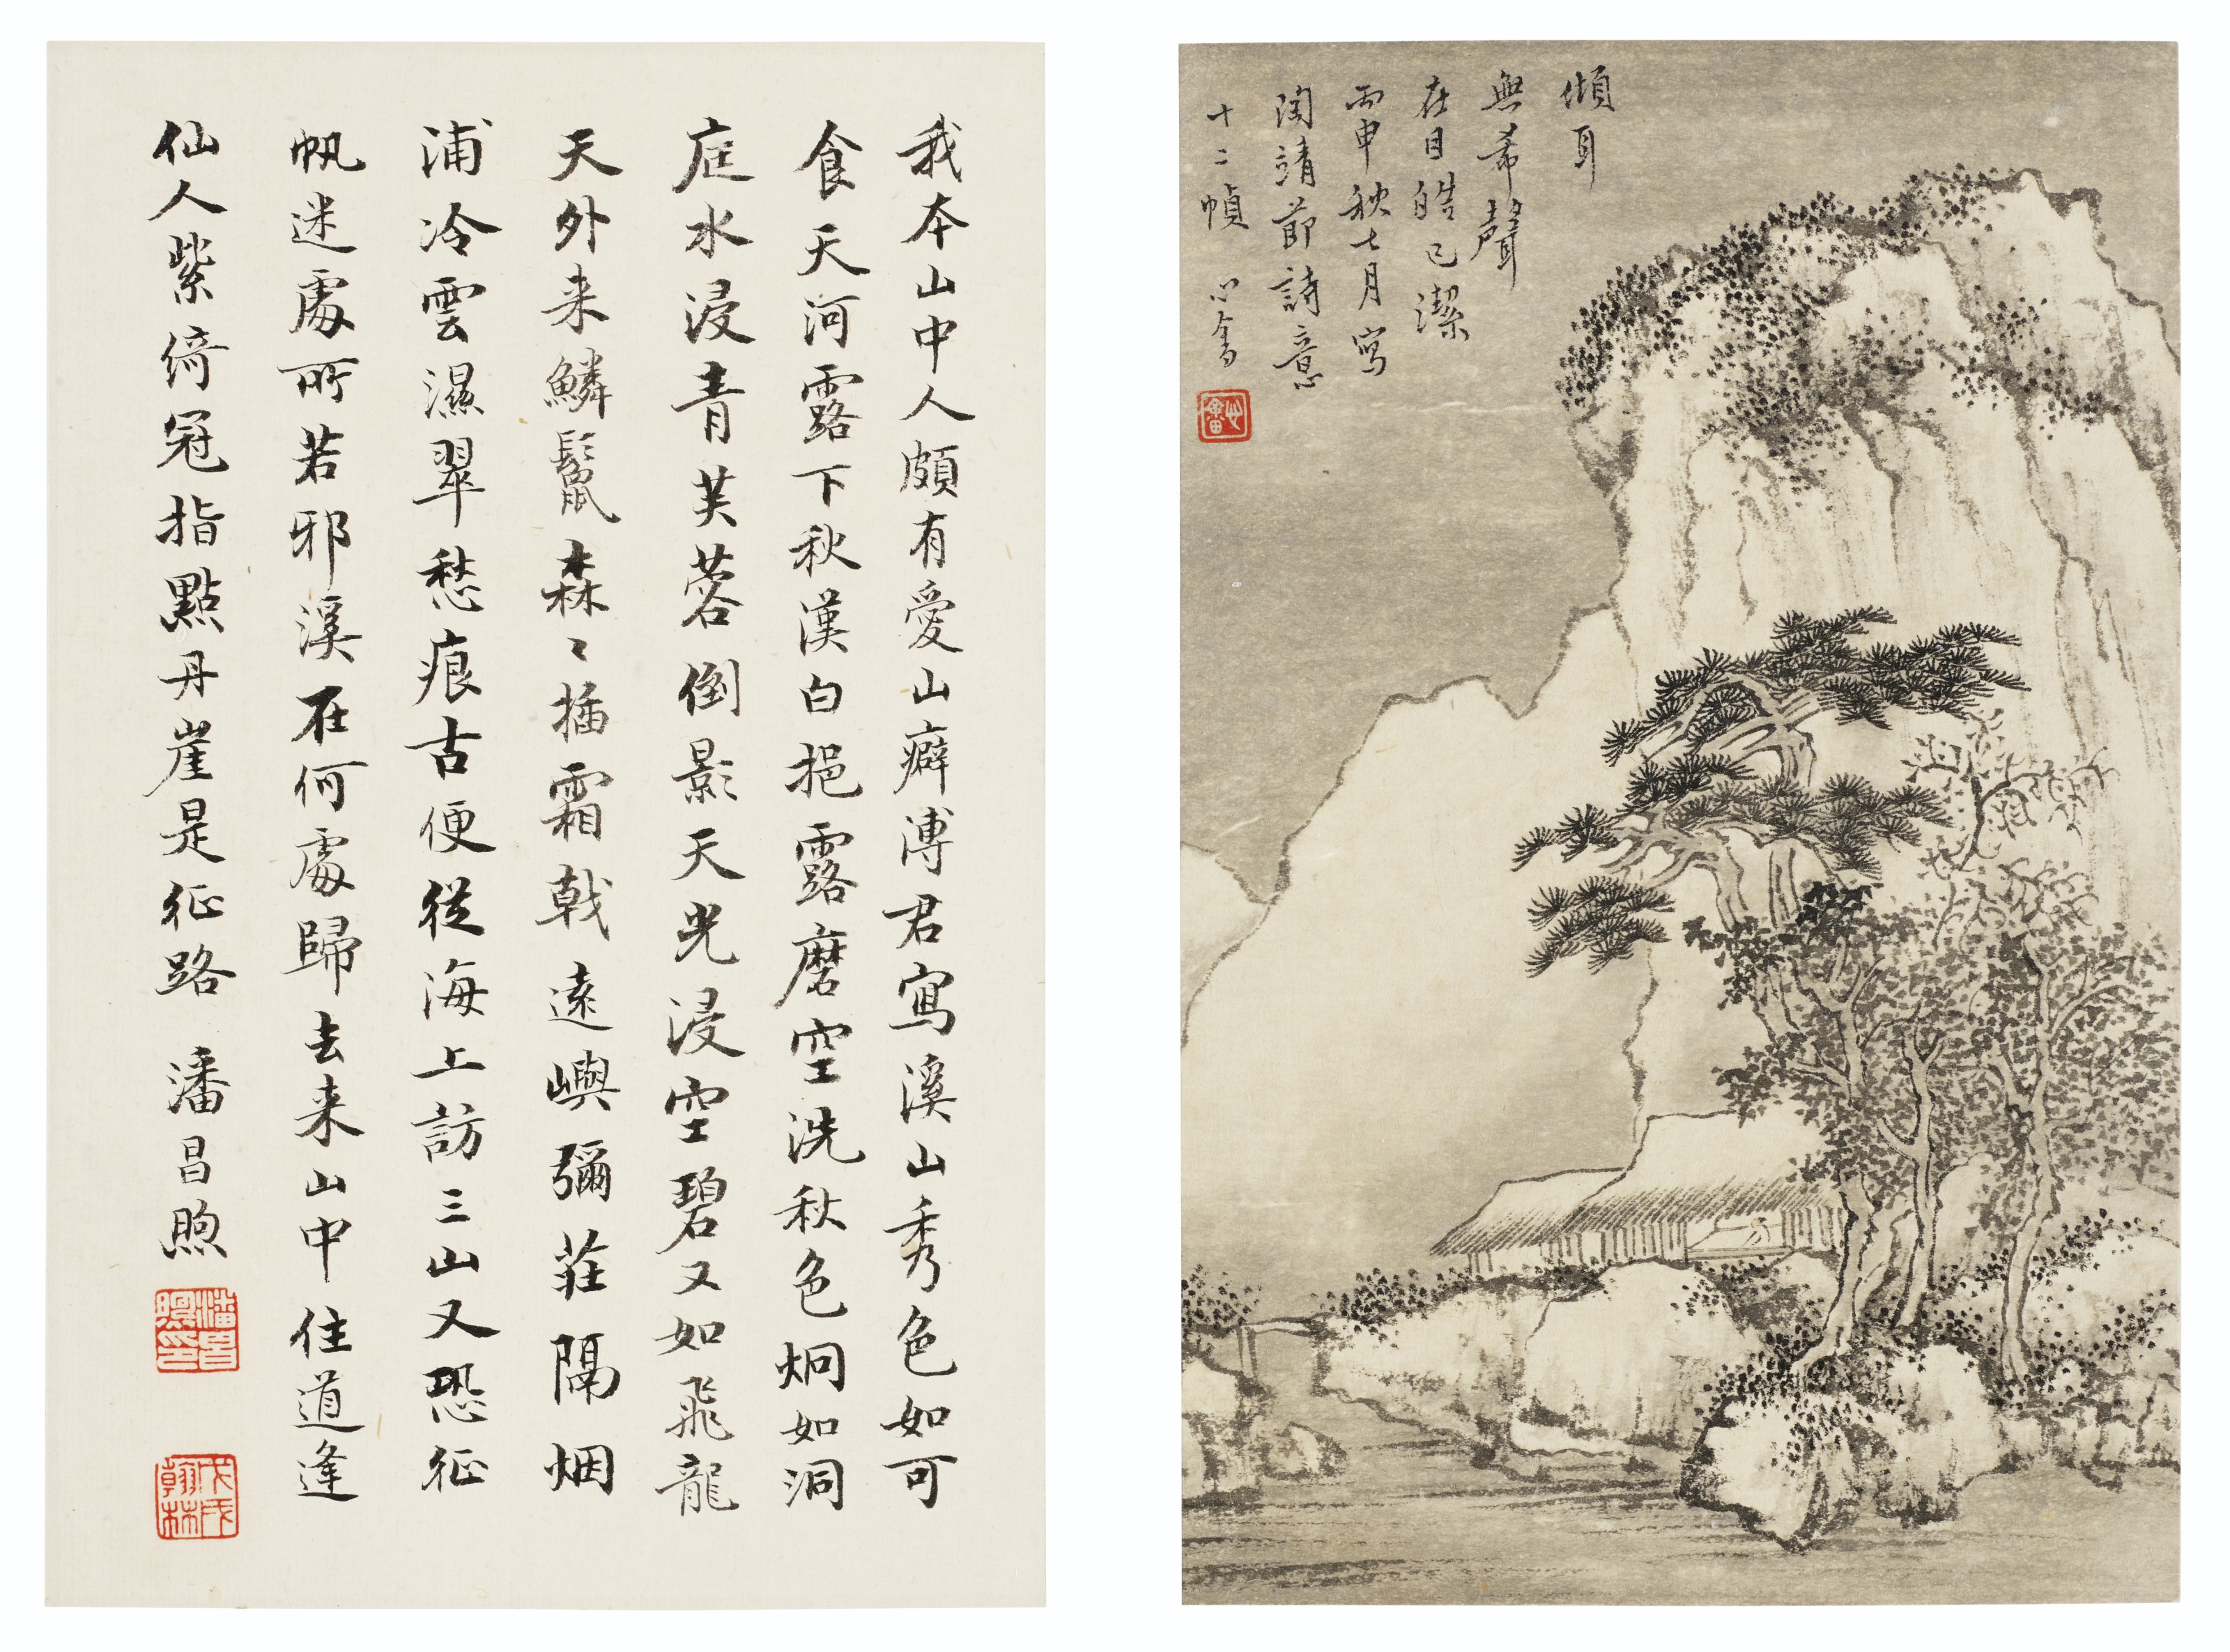 傾耳
無希聲
在目皓已潔
丙申秋七月寫
陶靖節詩意
十二幀 心畬
心畬
我本山中人頗有愛山癖溥君寫溪山秀色如可
食天河露下秋漢白挹露磨空洗秋色炯如洞
庭水浸青芙蓉倒影天光浸空碧又如飛龍
天外来鱗鬣森〻插霜戟遠嶼彌茫隔烟
浦冷雲濕翠愁痕古便從海上訪三山又恐征
帆迷處所若邪溪在何處歸去来山中住道逢
仙人紫綺冠指點丹崖是征路 潘昌煦
潘昌煦印
戊戌翰林